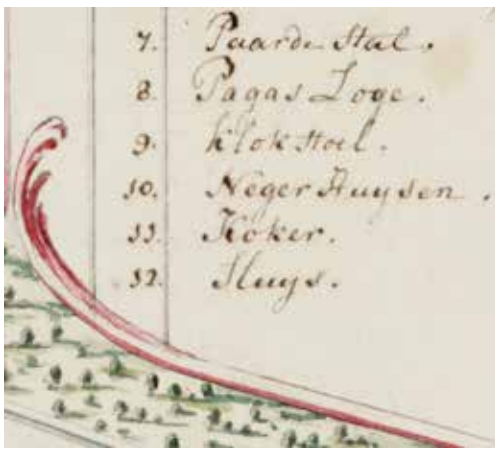 7. Paarde Stal.
8. Pagas Loge.
9. Klok Stoel.
10. Neger Huysen.
11. Koker.
12. Sluys.